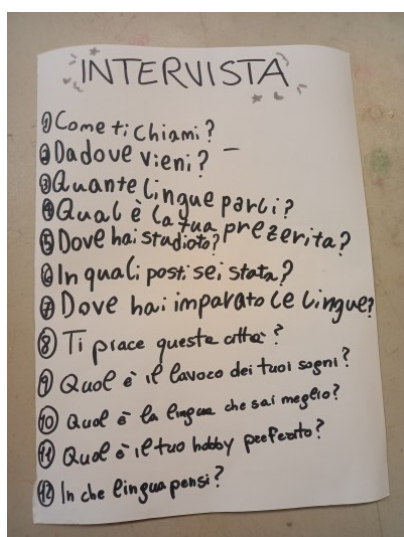 INTERVISTA
1 Come ti chiami?
2 Da dove vieni? –
3 Quante lingue parli?
4 Qual è la tua prezerita?
5 Dove hai studiato?
6 In quali posti sei stata?
7 Dove hai imparato le lingue?
8 Ti piace questa città?
9 Qual è il lavoro dei tuoi sogni?
10 Qual è la lingua che sai meglio?
11 Qual è il tuo hobby preferito?
12 In che lingua pensi?